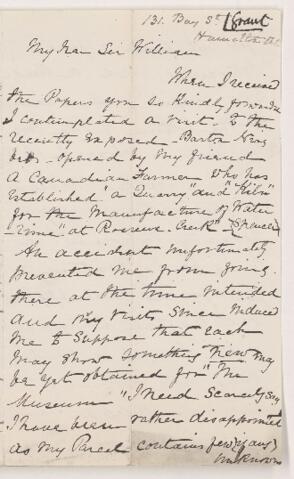 131. Bay St (Grant
Hamilton Ont
My Dear Sir William
When I received
the Papers you so kindly forwarded
I contemplated a visit to the
recently exposed Barton Niag
beds opened by my friend
A Canadian Farmer who has
established "a Quarry" and "Kiln"
for the Manufacture of Water
Lime" at Rosseaux Creek" (Spencer)
An accident unfortunately
prevented me from going
there at the time intended
and my visits since induced
me to suppose that each
may show something new may
be yet obtained for "The
Museum "I need scarcely say
I have been rather disappointed
as my Parcel contains few (if any)
unknown